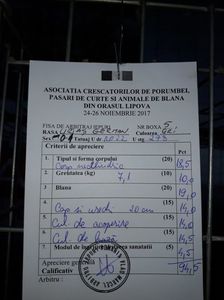 ASOCIATIA CRESCATORILOR DE PORUMBEI,
PASARI DE CURTE SI ANIMALE DE BLANA
DIN ORASUL LIPOVA
24-26 NOIEMBRIE 2017
FISA DE ARBITRAJ IEPURI NR BOXA 5
RASA URIAS GERMAN Culoarea GRI
Sex Tatuaj U dr 2022 U stg 273
Criterii de apreciere Pct
1. Tipul si forma corpului (20) 18,5
2. Greutatea (kg) 7,1 (10) 10,0
3. Blana (20) 19,0
4. Cap si urechi 20 cm (15) 14,0
5. Cul. de acoperire (15) 14,5
6. Cul. de bază (15) 14,5
7. Modul de intretinere (5) 4,5
Apreciere generala 94,5
Calificativ
Arbitru :